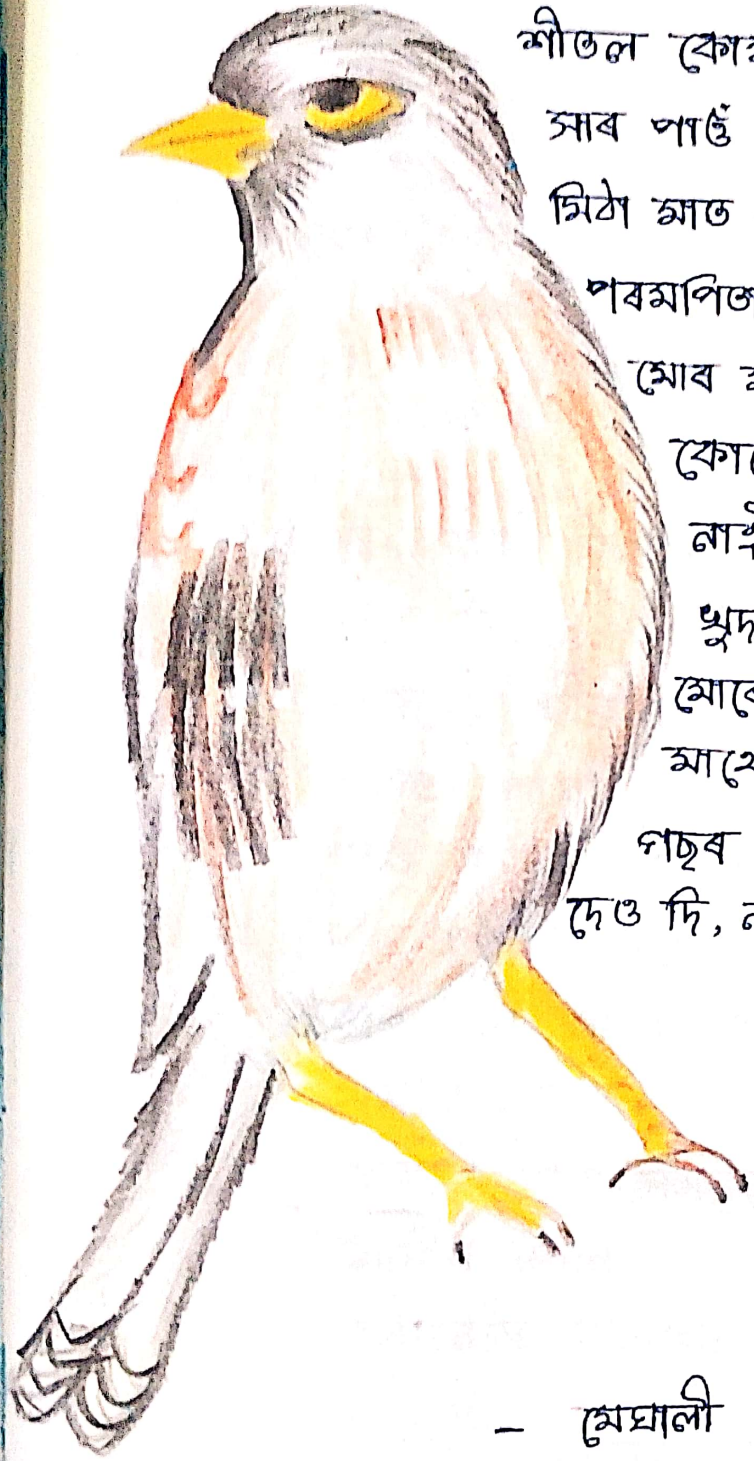 শীতল
সাৰ পাওঁ
মিঠা মাত
পৰমপিত
মোৰ
খুদ
মোৰে
মাথে
গছৰ
দেও দি,
– মেঘালী